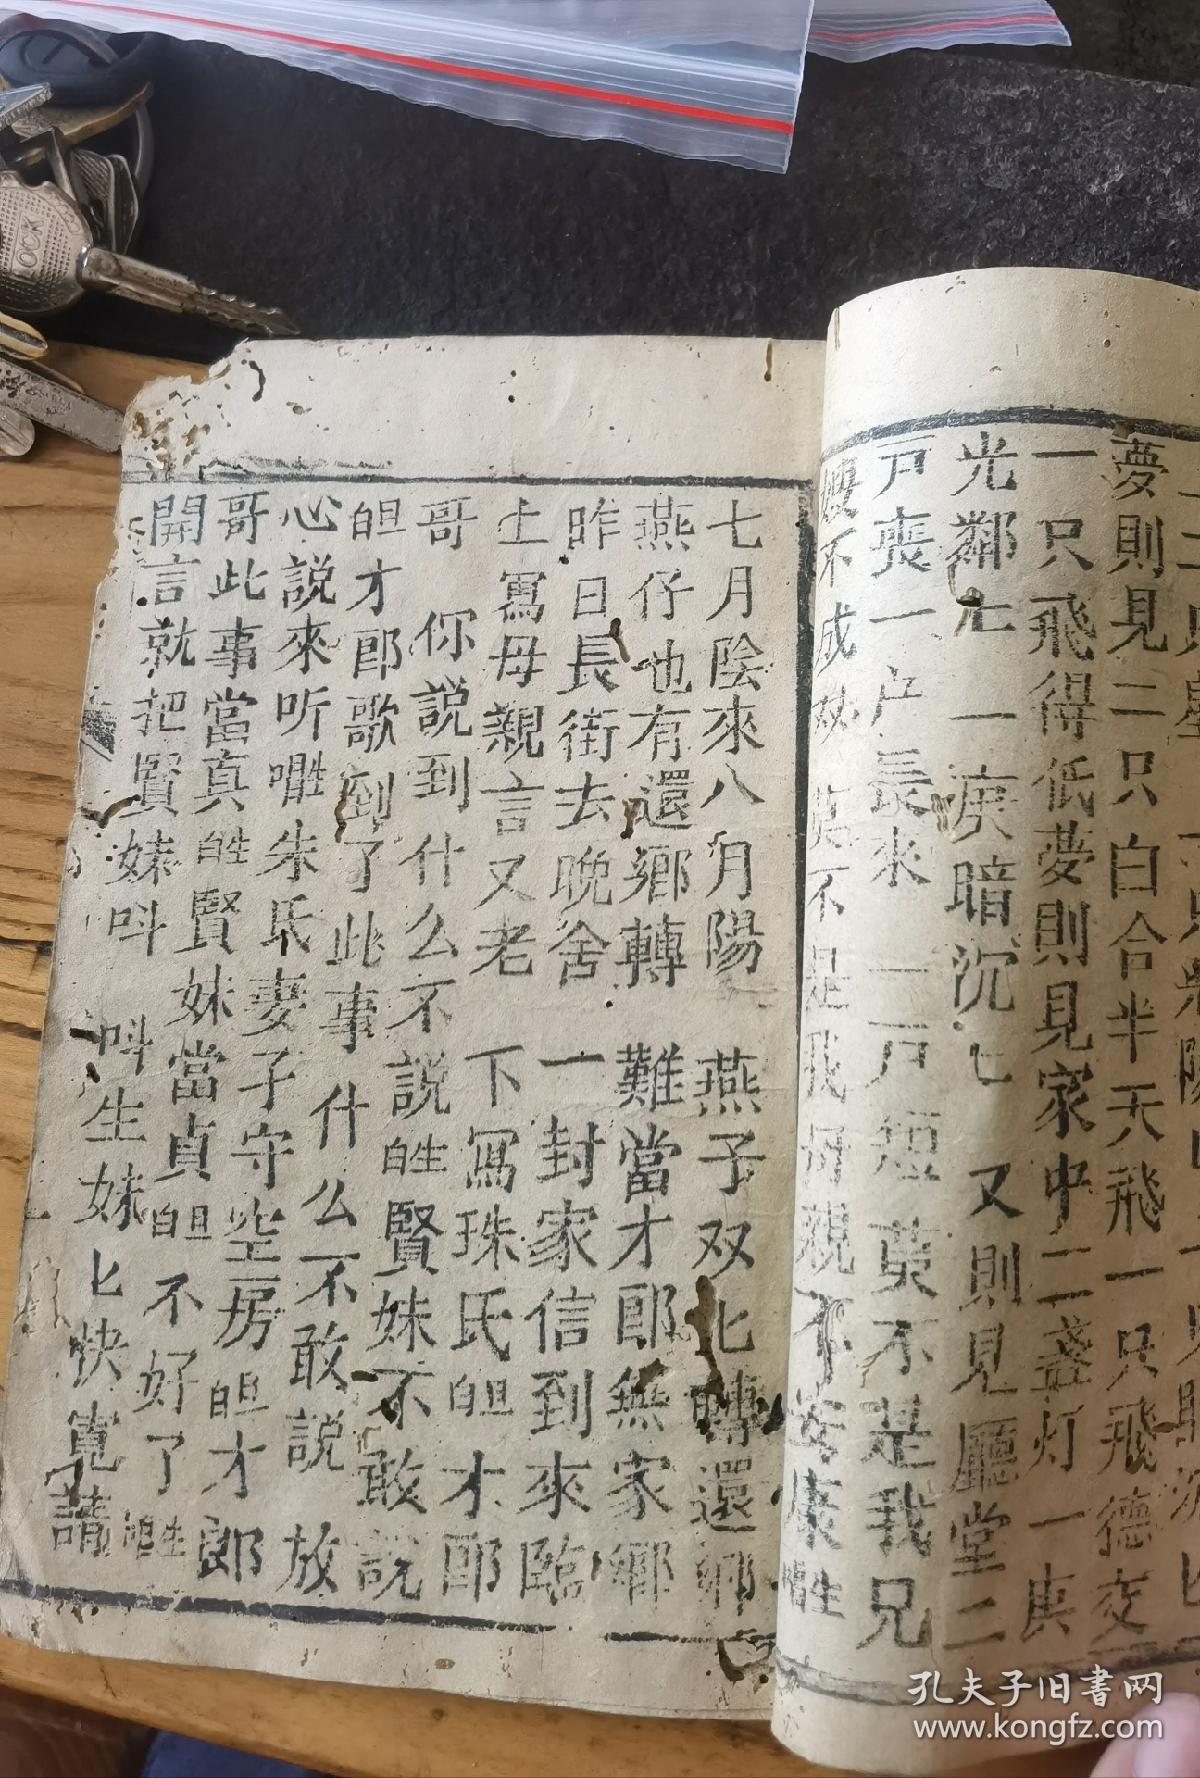 夢則見二只白合半天飛一只飛德交
一只飛得低夢則見家中二盞灯一庚
光鄰七一庚暗沉七 又則見廳堂二
戸喪一户長來一戸短莫不是我兄
嫂不成双莫不是我母親不安康唱生
七月陰來八月陽 燕子双匕轉還鄉
燕仔也有還鄉轉 難當才郎無家鄉
昨日長街去晚舍 一封家信到來臨
上寫母親言又老 下寫珠氏白旦才郎
哥 你説到什么不説白生賢妹不敢説
白旦才郎歌到了此事什么不敢説 放
心説來听唱生朱氏妻子守空房白旦才郎
哥此事當真白生賢妹當貞白旦不好了唱生
開言就把賢妹呌 呌生妹匕快寬請
孔夫子旧书网
www.kongfz.com
LOCK